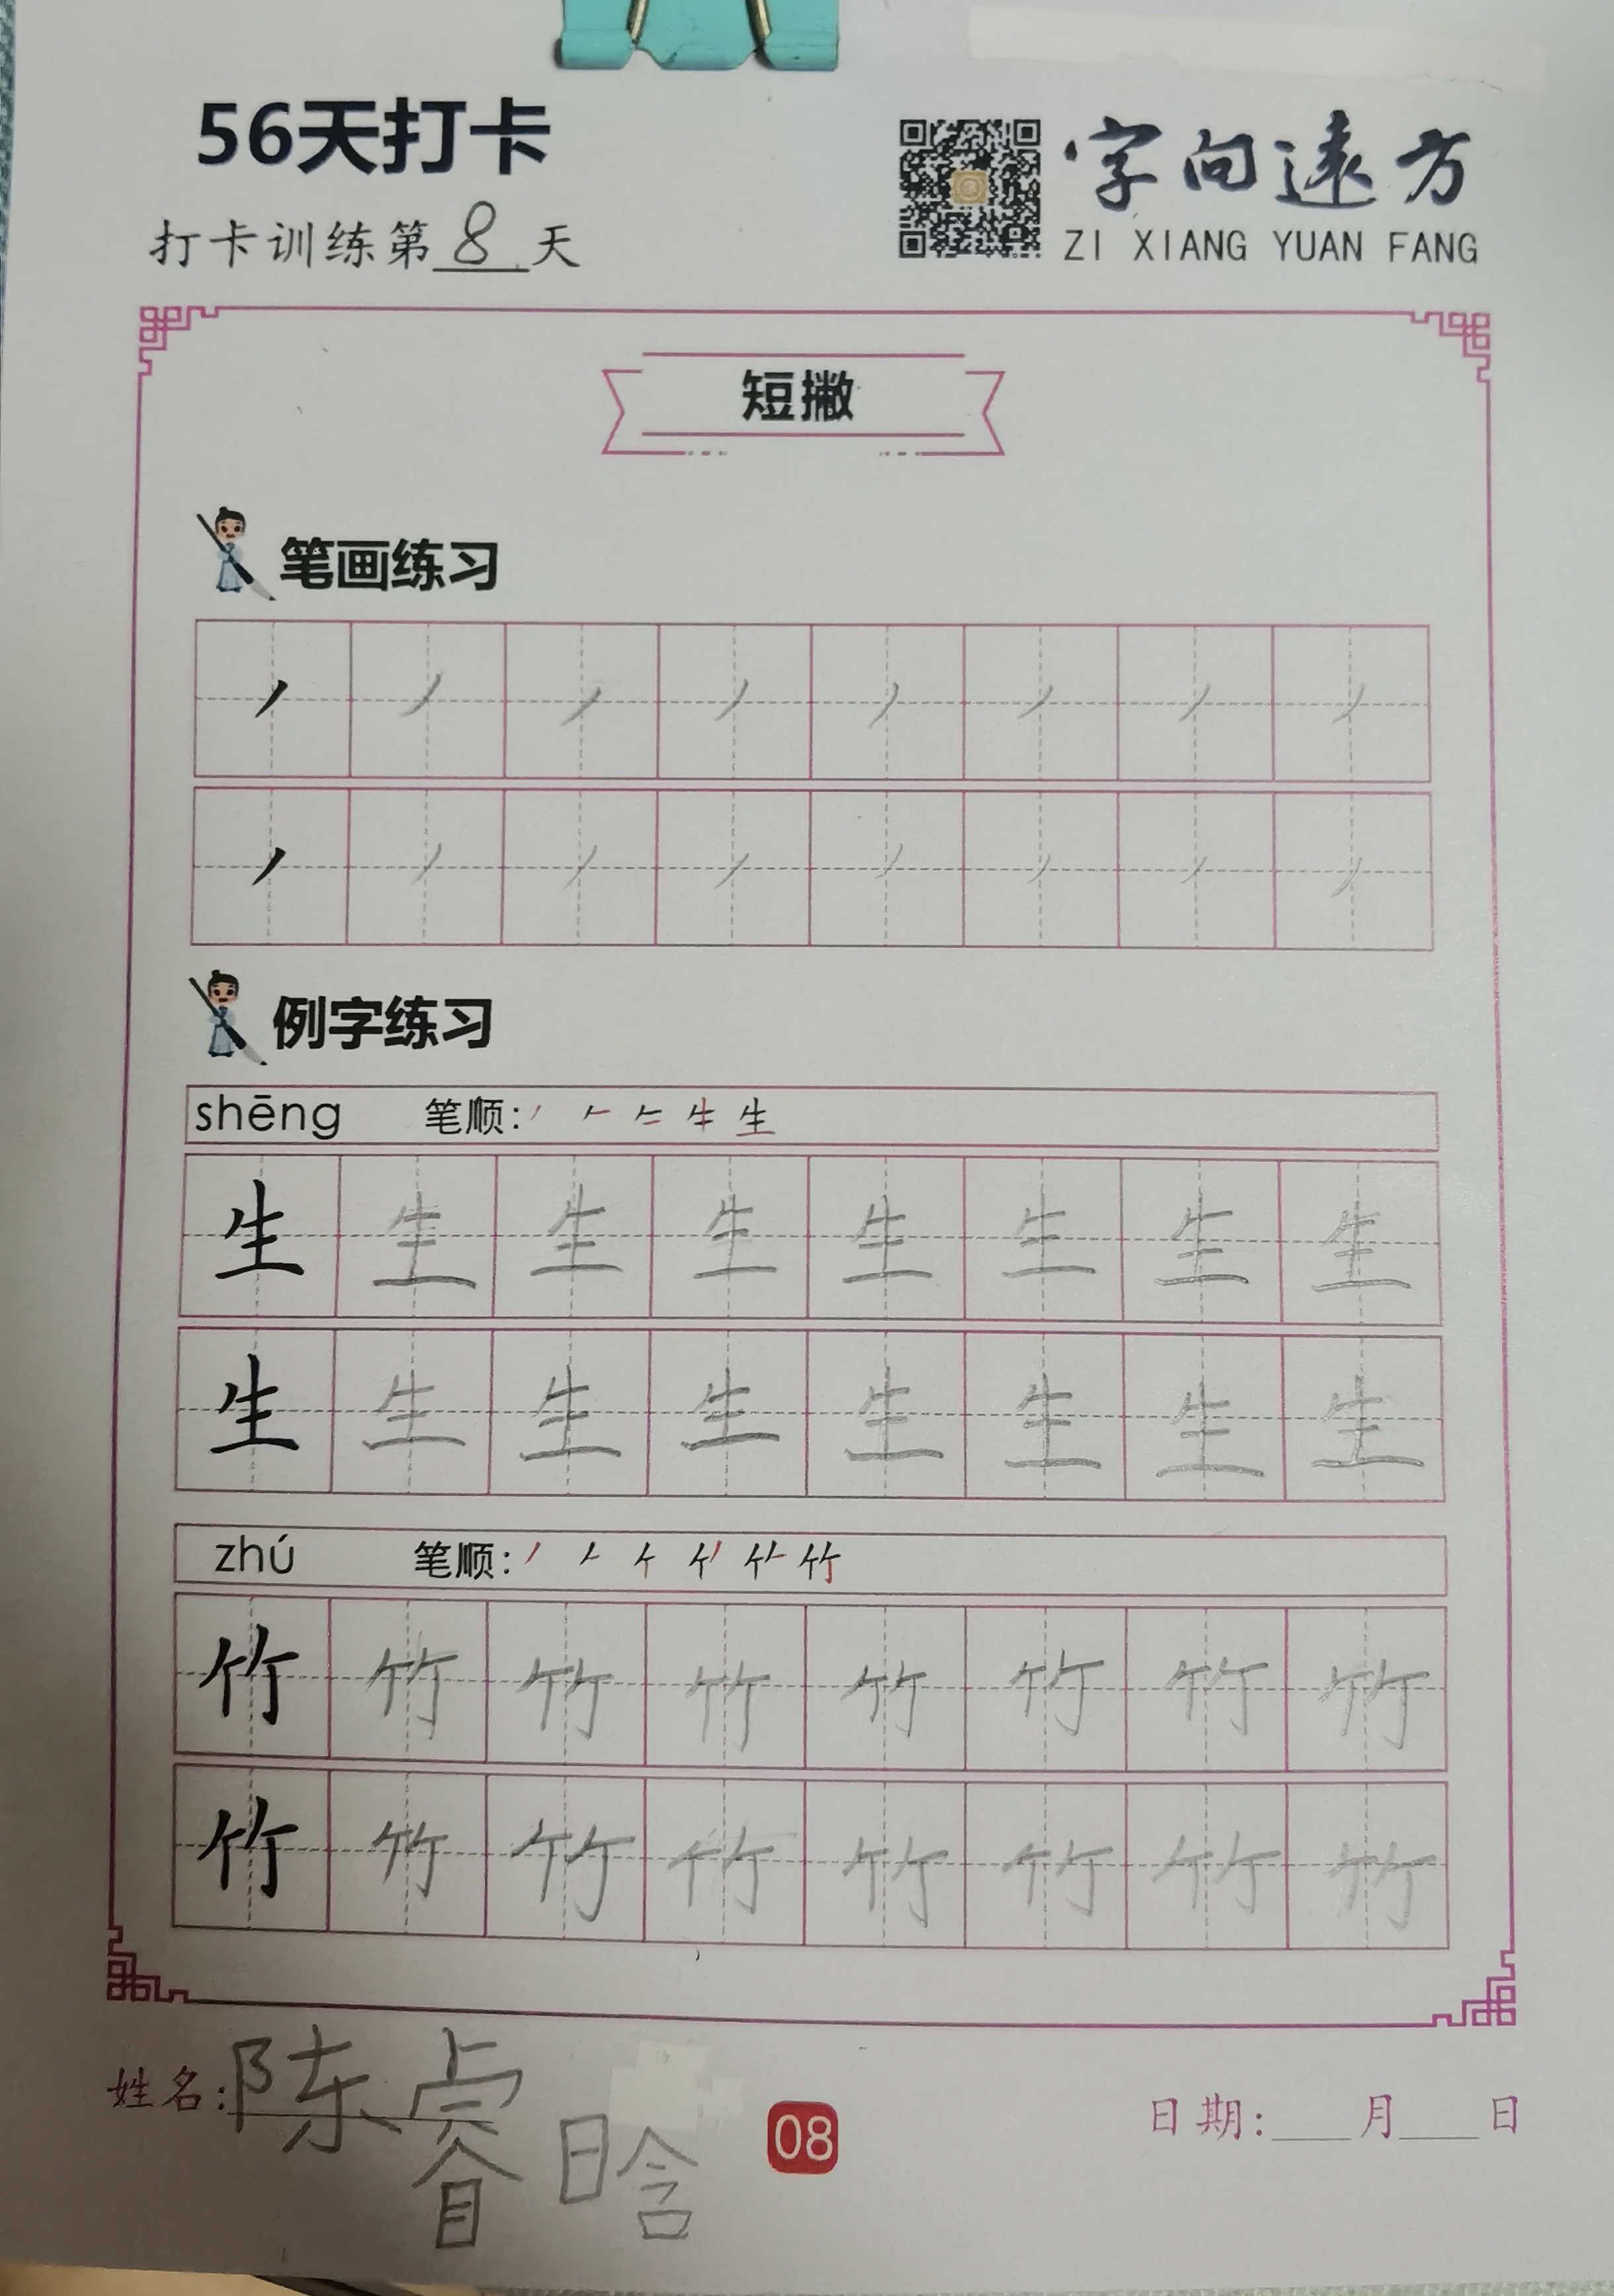 56天打卡
字向遠方
打卡训练第8天
ZI XIANG YUAN FANG
短撇
笔画练习
丿 丿 丿 丿 丿 丿 丿 丿
丿 丿 丿 丿 丿 丿 丿 丿
例字练习
shēng 笔顺：
生 生 生 生 生 生 生 生
生 生 生 生 生 生 生 生
zhú 笔顺：
竹 竹 竹 竹 竹 竹 竹 竹
竹 竹 竹 竹 竹 竹 竹 竹
姓名：陈睿晗
08
日期：___月___日